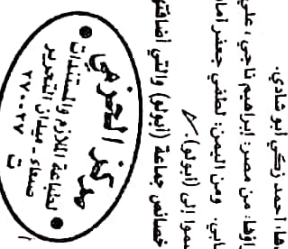 ها: أحمد زكي أبو شادي.
اؤها: من مصر: إبراهيم ناجي، علي
ابي. ومن اليمن: لطفي جعفر أمان
يموا إلى (أبولو).
خصائص جماعة (أبولو) والتي أضافتها
مركز الحزمي
لطباعة الملازم والمستندات
صنعاء - ميدان التحرير
ت